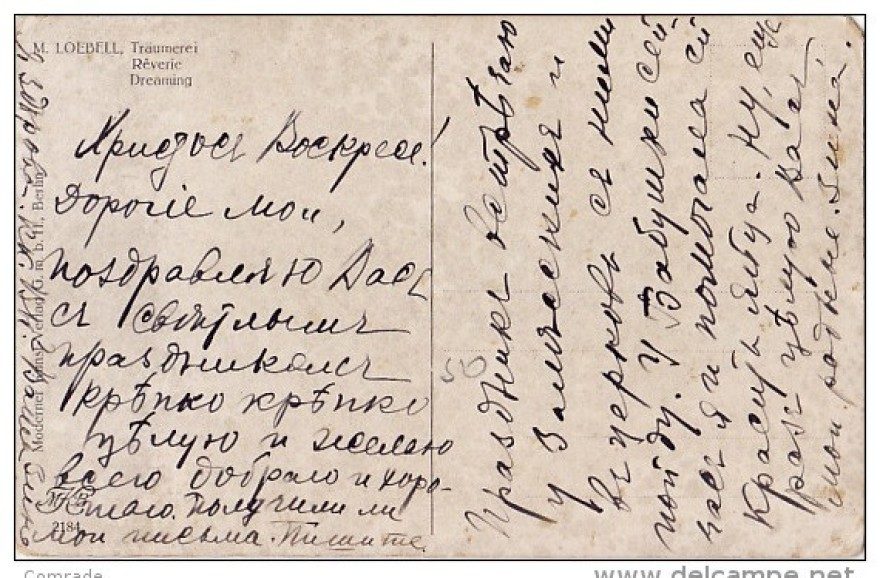 M. LOEBELL, Träumerei
Rêverie
Dreaming
Христосъ Воскресе!
Дорогіе мои,
поздравляю Васъ
съ свѣтлымъ
праздникомъ
крѣпко крѣпко
цѣлую и желаю
всего добраго и хоро-
шаго. Получили ли
мои письма. Пишите.
Праздникъ встрѣчаю
у и
въ церковь съ ними
пойду. У Бабушки сей-
часъ я и помогала ей
красить яйца. Ну, еще
разъ цѣлую Васъ
мои родные. Зина.
Moderner Kunst-Verlag, G. m. b. H., Berlin
2184
50
Comrade
www.delcampe.net